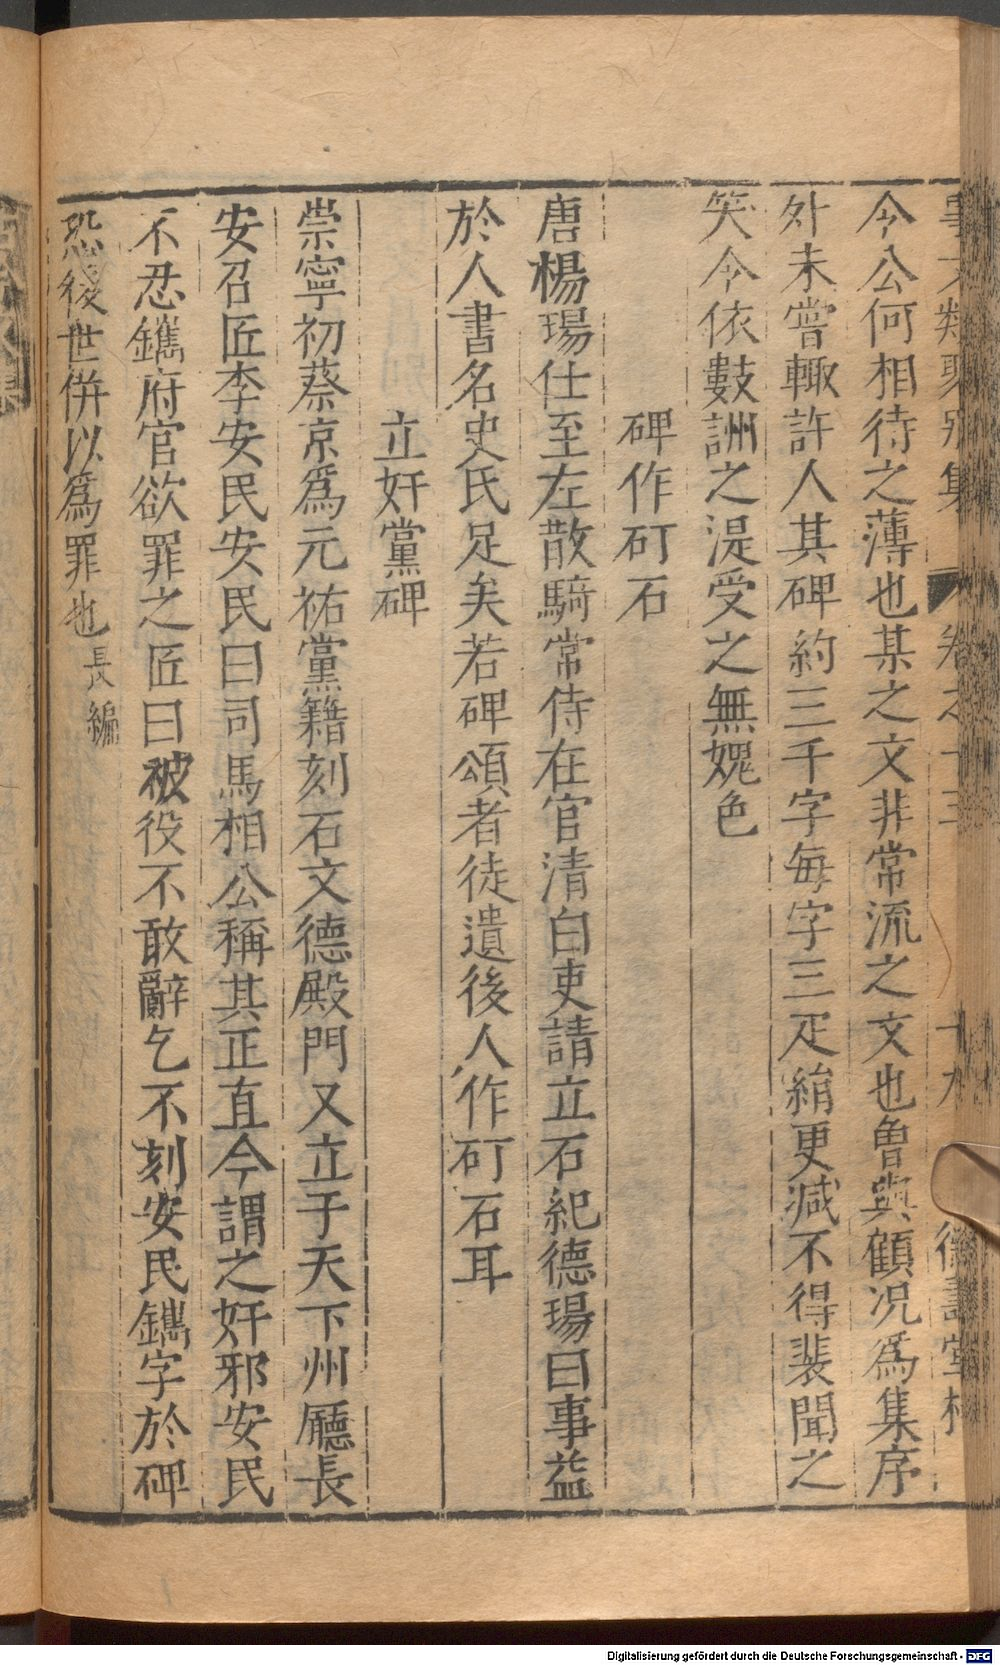 事文類聚別集 卷之十三 十九 德壽堂梓
今公何相待之薄也某之文非常流之文也魯與顧况爲集序
外未嘗輙許人其碑約三千字每字三疋絹更减不得裴聞之
笑今依數詶之湜受之無媿色
碑作矴石
唐楊瑒仕至左散騎常侍在官清白吏請立石紀德瑒曰事益
於人書名史氏足矣若碑頌者徒遺後人作矴石耳
立奸黨碑
崇寧初蔡京爲元祐黨籍刻石文德殿門又立于天下州廳長
安召匠李安民安民曰司馬相公稱其正直今謂之奸邪安民
不忍鐫府官欲罪之匠曰被役不敢辭乞不刻安民鐫字於碑
恐後世併以爲罪也長編
Digitalisierung gefördert durch die Deutsche Forschungsgemeinschaft - DFG